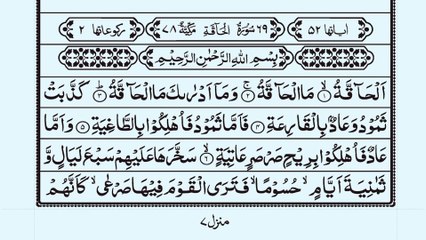 اٰیاتها ۵۲ ۶۹ سُوْرَةُ الْحَآقَّةِ مَكِّيَّةٌ ۷۸ رکوعاتها ۲
بِسْمِ اللهِ الرَّحْمٰنِ الرَّحِيْمِ
اَلْحَآقَّةُ ۙ﴿۱﴾ مَا الْحَآقَّةُ ۚ﴿۲﴾ وَمَآ اَدْرٰىكَ مَا الْحَآقَّةُ ؕ﴿۳﴾ كَذَّبَتْ
ثَمُوْدُ وَعَادٌۢ بِالْقَارِعَةِ ﴿۴﴾ فَاَمَّا ثَمُوْدُ فَاُهْلِكُوْا بِالطَّاغِيَةِ ﴿۵﴾ وَاَمَّا
عَادٌ فَاُهْلِكُوْا بِرِيْحٍ صَرْصَرٍ عَاتِيَةٍ ۙ﴿۶﴾ سَخَّرَهَا عَلَيْهِمْ سَبْعَ لَيَالٍ وَّ
ثَمٰنِيَةَ اَيَّامٍ ۙ حُسُوْمًا ۙ فَتَرَى الْقَوْمَ فِيْهَا صَرْعٰى ۙ كَاَنَّهُمْ
منزل ۷